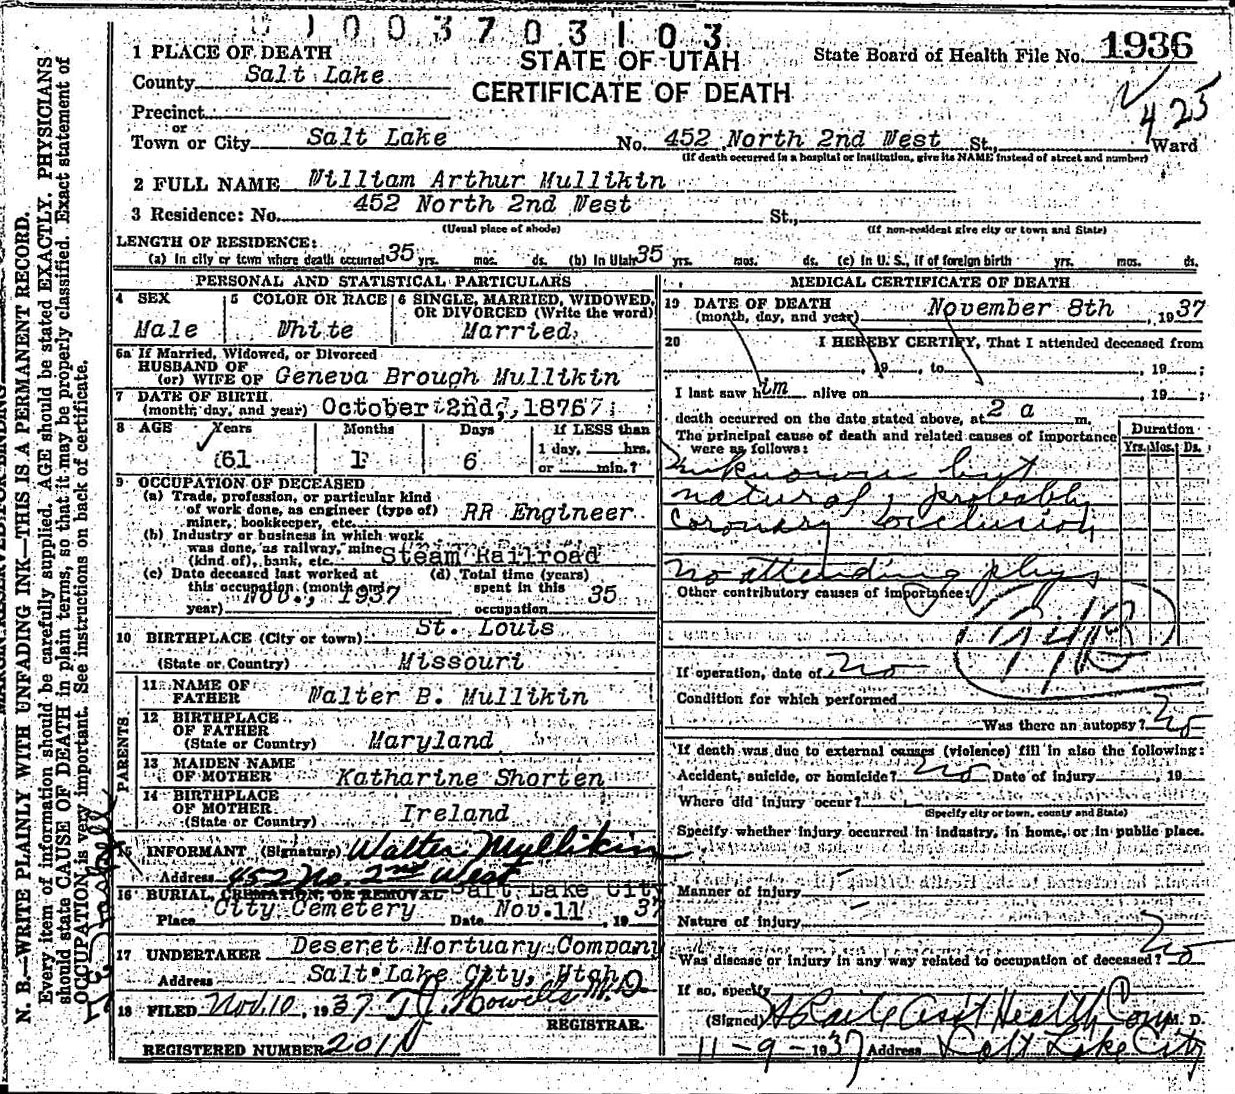 1003703103
1 PLACE OF DEATH
STATE OF UTAH
State Board of Health File No. 1936
County Salt Lake
CERTIFICATE OF DEATH
425
Precinct
or
Town or City Salt Lake No. 452 North 2nd West St., Ward
(If death occurred in a hospital or institution, give its NAME instead of street and number)
2 FULL NAME William Arthur Mullikin
3 Residence: No. 452 North 2nd West St.,
(Usual place of abode) (If non-resident give city or town and State)
LENGTH OF RESIDENCE:
(a) In city or town where death occurred 35 yrs. mos. ds. (b) In Utah 35 yrs. mos. ds. (c) In U. S., if of foreign birth yrs. mos. ds.
PERSONAL AND STATISTICAL PARTICULARS
4 SEX
Male
5 COLOR OR RACE
White
6 SINGLE, MARRIED, WIDOWED,
OR DIVORCED (Write the word)
Married
6a If Married, Widowed, or Divorced
HUSBAND OF
(or) WIFE OF Geneva Brough Mullikin
7 DATE OF BIRTH
(month, day, and year) October 2nd, 1876
8 AGE Years Months Days If LESS than
1 day, hrs.
or min.?
61 1 6
9 OCCUPATION OF DECEASED
(a) Trade, profession, or particular kind
of work done, as engineer (type of)
miner, bookkeeper, etc. RR Engineer
(b) Industry or business in which work
was done, as railway, mine
(kind of), bank, etc. Steam Railroad
(c) Date deceased last worked at
this occupation (month and
year) Nov., 1937
(d) Total time (years)
spent in this
occupation 35
10 BIRTHPLACE (City or town) St. Louis
(State or Country) Missouri
PARENTS
11 NAME OF
FATHER Walter B. Mullikin
12 BIRTHPLACE
OF FATHER
(State or Country) Maryland
13 MAIDEN NAME
OF MOTHER Katharine Shorten
14 BIRTHPLACE
OF MOTHER
(State or Country) Ireland
15 INFORMANT (Signature) Walter Mullikin
Address 452 No. 2nd West
16 BURIAL, CREMATION, OR REMOVAL Salt Lake City
Place City Cemetery Date Nov. 11, 1937
17 UNDERTAKER Deseret Mortuary Company
Address Salt Lake City, Utah
18 FILED Nov. 10, 1937 T. J. Howells M.D.
REGISTRAR.
REGISTERED NUMBER 2011
MEDICAL CERTIFICATE OF DEATH
19 DATE OF DEATH
(month, day, and year) November 8th, 1937
20 I HEREBY CERTIFY, That I attended deceased from
, 19 , to , 19 ;
I last saw him alive on , 19 ;
death occurred on the date stated above, at 2 a m.
The principal cause of death and related causes of importance
were as follows:
Duration
Yrs. Mos. Ds.
Unknown but
natural, probably
coronary occlusion
No attending phys
Other contributory causes of importance:
If operation, date of no
Condition for which performed
Was there an autopsy? No
If death was due to external causes (violence) fill in also the following:
Accident, suicide, or homicide? No Date of injury , 19
Where did injury occur?
(Specify city or town, county and State)
Specify whether injury occurred in industry, in home, or in public place.
Manner of injury
Nature of injury
Was disease or injury in any way related to occupation of deceased? No
If so, specify
(Signed) Asst Health Com M. D.
11-9-1937 Address Salt Lake City
N. B.—WRITE PLAINLY WITH UNFADING INK—THIS IS A PERMANENT RECORD.
Every item of information should be carefully supplied. AGE should be stated EXACTLY. PHYSICIANS
should state CAUSE OF DEATH in plain terms, so that it may be properly classified. Exact statement of
OCCUPATION is very important. See instructions on back of certificate.